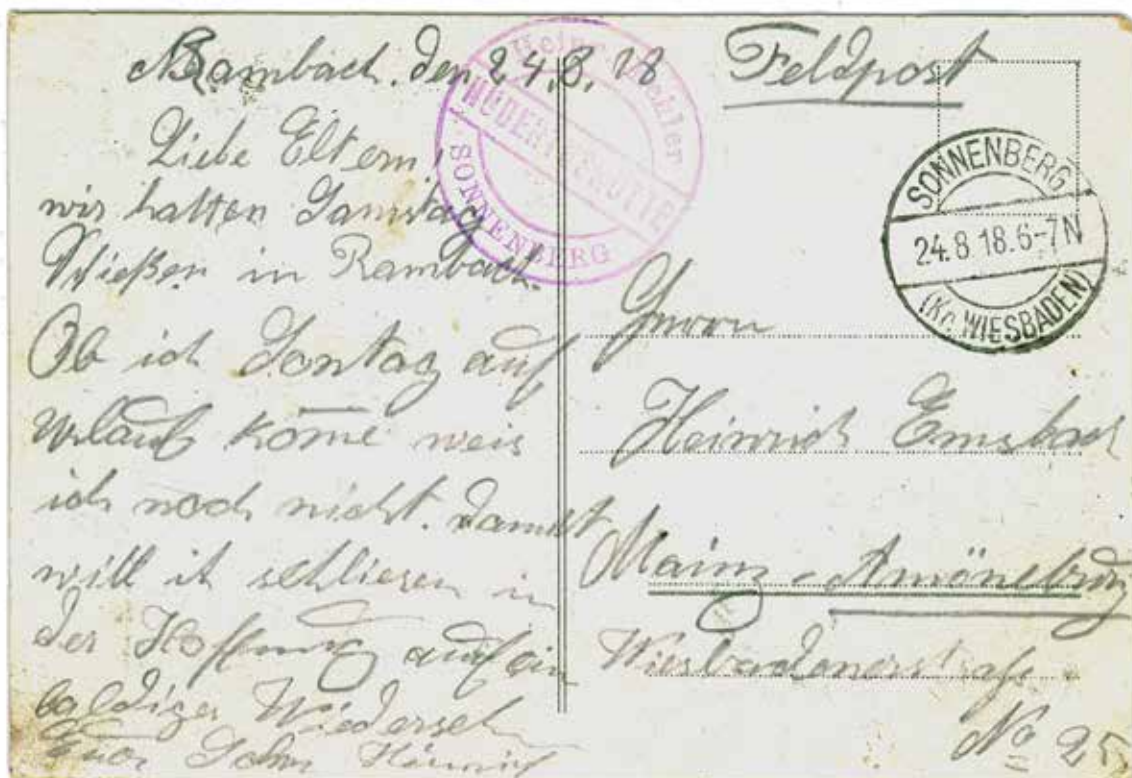 Rambach. den 24.8.18
Liebe Eltern,
wir hatten Samstag
Schießen in Rambach.
Ob ich Sontag auf
Urlaub kom̄e weis
ich noch nicht. Damit
will ich schliesen in
der Hoffnung auf ein
baldiges Wiederseh
Euer Sohn Heinrich
Feldpost
SONNENBERG
SONNENBERG
24.8.18.6-7N
(Kr. WIESBADEN)
Herrn
Heinrich Emsbach
Mainz-Amöneburg
Wiesbadenerstraße
No 25